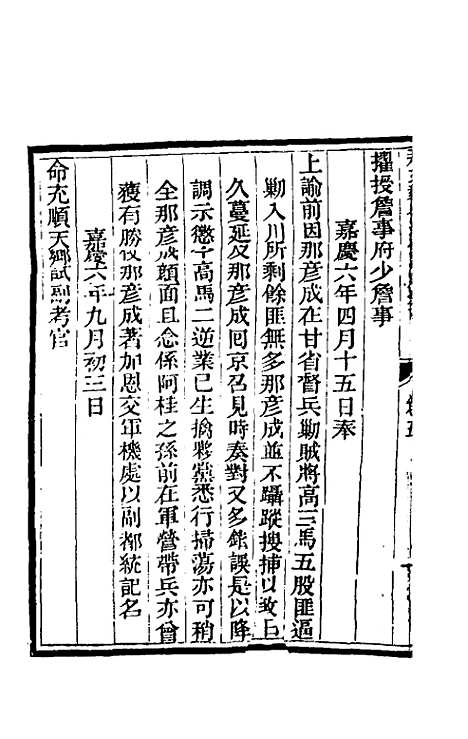 擢授詹事府少詹事
嘉慶六年四月十五日奉
上諭前因那彥成在甘省督兵勦賊將高三馬五股匪逼
勦入川所剩餘匪無多那彥成並不躡蹤搜捕以致日
久蔓延及那彥成回京召見時奏對又多錯誤是以降
調示懲今高馬二逆業已生擒夥黨悉行掃蕩亦可稍
全那彥成顏面且念係阿桂之孫前在軍營帶兵亦曾
獲有勝仗那彥成著加恩交軍機處以副都統記名
嘉慶六年九月初三日
命充順天鄉試副考官